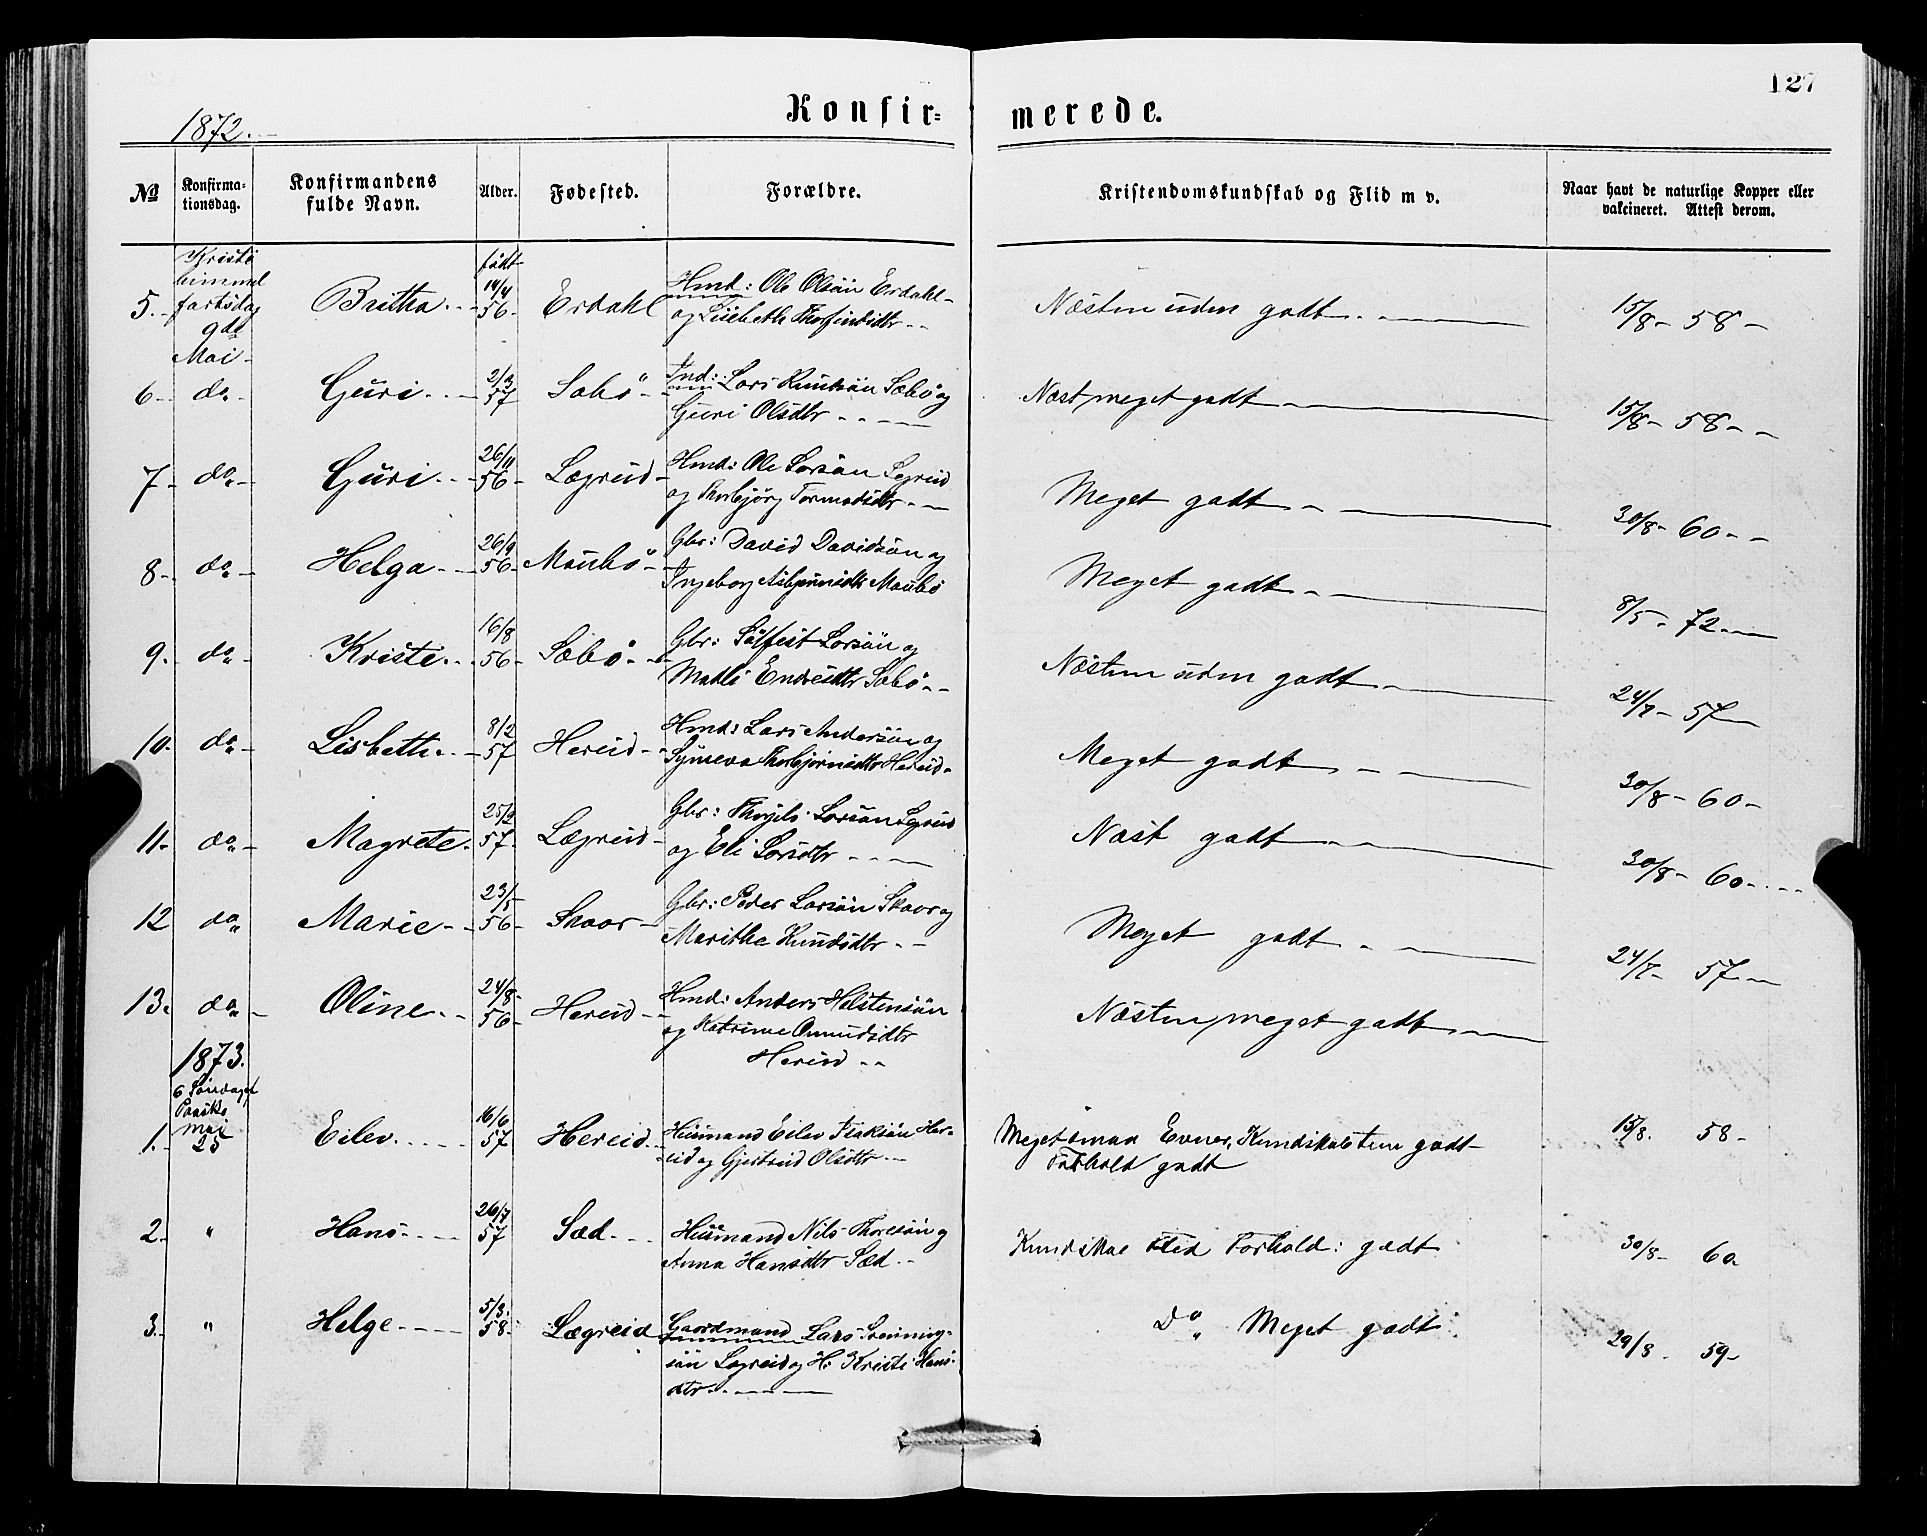 127
Konfirmerede.
1872.
No Konfirmationsdag. Konfirmandens fulde Navn. Alder. Fødested. Forældre. Kristendomskundskab og Flid m v. Naar havt de naturlige Kopper eller vakcineret. Attest derom.
Kristi
himmel
fartsdag
9de
Mai
født
5. Britha 14/4 56 Erdahl
Hmd: Ole Olsön Erdahl
og Lisbeth Thorfindsdtr
Næsten uden godt 15/8 58
6 do Guri 2/3 57 Sæbö
Ind: Lars Knutsön Sæbö og
Guri Olsdtr
Næst meget godt 15/8 58
7 do Guri 26/11 56 Lægreid
Hmd: Ole Larsön Legreid
og Thorbjörg Tormodsdtr
Meget godt 30/8 60
8 do Helga 26/9 56 Maubö
Gbr: David Davidsön og
Ingeborg Asbjörnsdtr Maubö
Meget godt 8/5 72
9. do Kristi 16/8 56 Sæbö
Gbr: Sölfest Larsön og
Madli Endresdtr Sæbö
Næsten uden godt 24/7 57
10 do Lisbeth 8/2 57 Hereid
Hmd: Lars Andersön og
Synneva Thorbjörnsdtr Hereid
Meget godt 30/8 60
11 do Magrete 25/3 57 Lægreid
Gbr: Thorgils Larsön Legreid
og Eli Larsdtr
Næst godt 30/8 60
12 do Marie 23/5 56 Skaar
Gbr: Peder Larsön Skaar og
Maritha Knudsdtr
Meget godt 24/7 57
13. do Oline 24/8 56 Hereid
Hmd: Anders Holstensön
og Katrine Omundsdtr
Hereid
Næsten meget godt
1873.
6 Söndag ef
Paaske
Mai
25
1. Eilev 16/6 57 Hereid
Huusmand Eilev Isaksön Her-
eid og Gjertrud Olsdtr
Meget smaa Evner, Kundskab tem godt
Forhold godt
15/8. 58
2. " Hans 26/7 57 Sæd
Huusmand Nils Thoresön og
Anna Hansdtr Sæd
Kundskab Flid Forhold: godt 30/8 60
3. " Helge 5/3. 58 Lægreid
Gaardmand Lars Brenning-
sön Legreid og H. Kristi Hans-
dtr
Do Meget godt 29/8 59